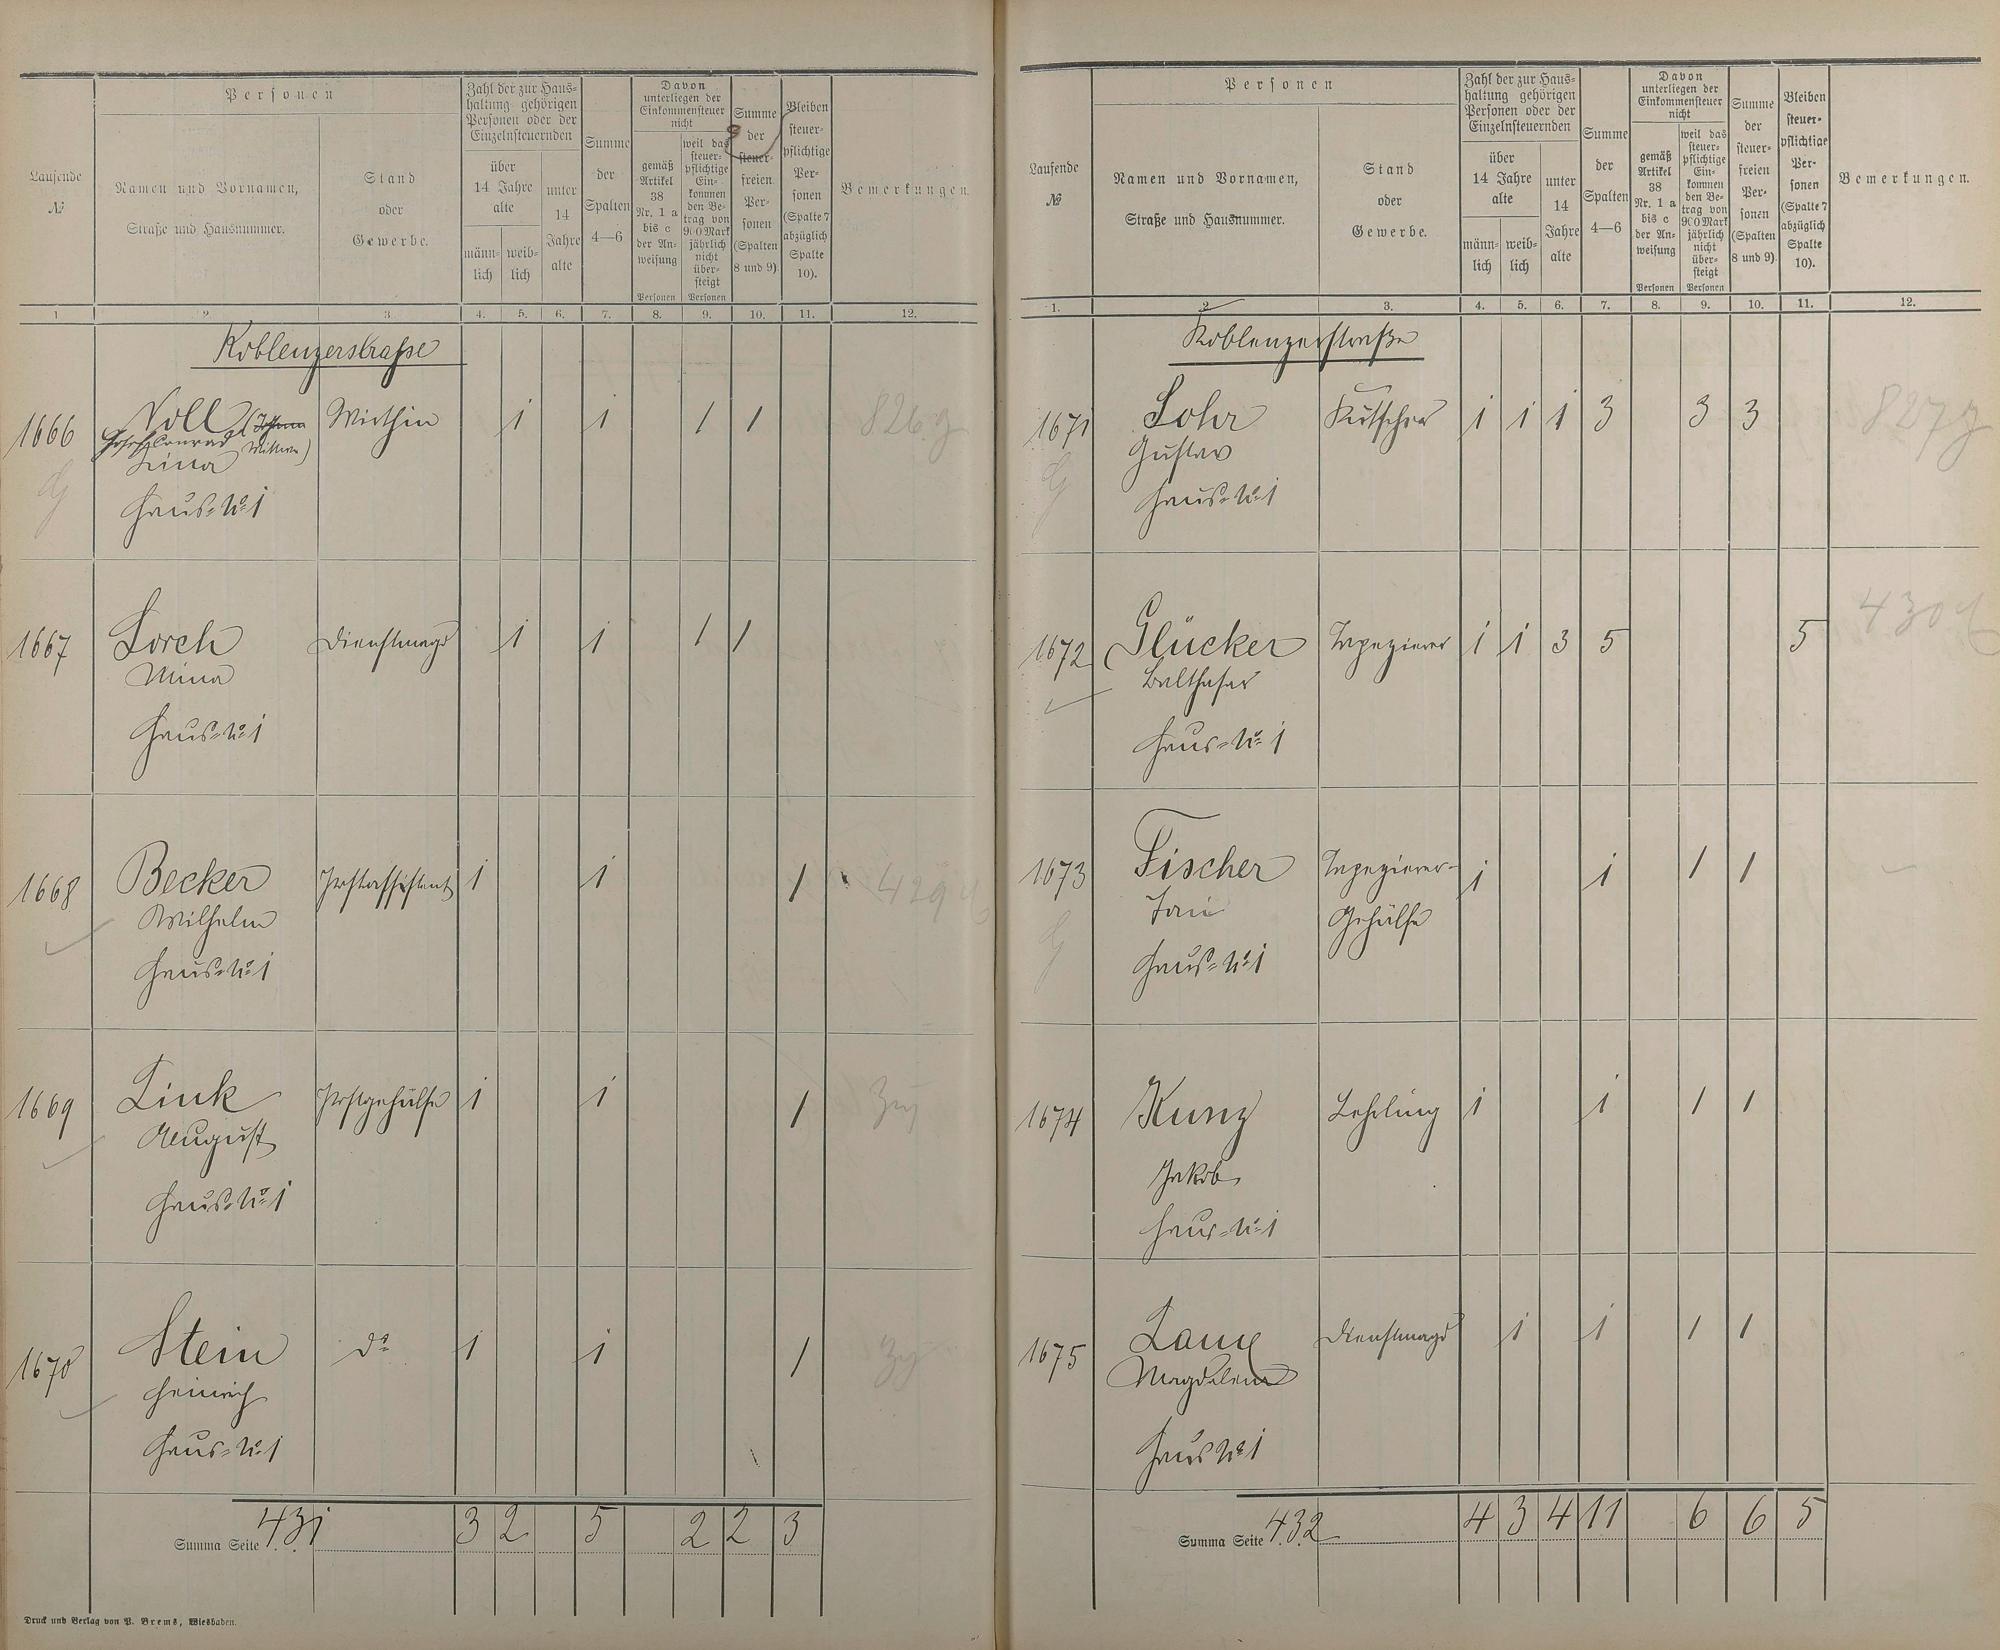 Laufende
№
Personen
Namen und Vornamen,
Straße und Hausnummer.
Stand
oder
Gewerbe.
Zahl der zur Haus-
haltung gehörigen
Personen oder der
Einzelnsteuernden
über
14 Jahre
alte
männ-
lich
weib-
lich
unter
14
Jahre
alte
Summe
der
Spalten
4—6
Davon
unterliegen der
Einkommensteuer
nicht
gemäß
Artikel
38
Nr. 1 a
bis c
der An-
weisung
Personen
weil das
steuer-
pflichtige
Ein-
kommen
den Be-
trag von
900 Mark
jährlich
nicht
über-
steigt
Personen
Summe
der
steuer-
freien
Per-
sonen
(Spalten
8 und 9).
Bleiben
steuer-
pflichtige
Per-
sonen
(Spalte 7
abzüglich
Spalte
10).
Bemerkungen.
1 2. 3. 4. 5. 6. 7. 8. 9. 10. 11. 12.
Koblenzerstraße
1666 Noll Wirthin 1 1 1 1 826
Josef Conrad Wittwe)
Lina
Haus-No 1
1667 Lorch Dienstmagd 1 1 1 1
Mina
Haus-No 1
1668 Becker Postassistent 1 1 1 429
Wilhelm
Haus-No 1
1669 Link Postgehülfe 1 1 1
August
Haus-No 1
1670 Stein do 1 1 1
Heinrich
Haus-No 1
Summa Seite 431 3 2 5 2 2 3
Druck und Verlag von P. Brems, Wiesbaden.
Laufende
№
Personen
Namen und Vornamen,
Straße und Hausnummer.
Stand
oder
Gewerbe.
Zahl der zur Haus-
haltung gehörigen
Personen oder der
Einzelnsteuernden
über
14 Jahre
alte
männ-
lich
weib-
lich
unter
14
Jahre
alte
Summe
der
Spalten
4—6
Davon
unterliegen der
Einkommensteuer
nicht
gemäß
Artikel
38
Nr. 1 a
bis c
der An-
weisung
Personen
weil das
steuer-
pflichtige
Ein-
kommen
den Be-
trag von
900 Mark
jährlich
nicht
über-
steigt
Personen
Summe
der
steuer-
freien
Per-
sonen
(Spalten
8 und 9).
Bleiben
steuer-
pflichtige
Per-
sonen
(Spalte 7
abzüglich
Spalte
10).
Bemerkungen.
1. 2. 3. 4. 5. 6. 7. 8. 9. 10. 11. 12.
Koblenzerstraße
1671 Lohr Kutscher 1 1 1 3 3 3 827
Gustav
Haus-No 1
1672 Glücker Tapezierer 1 1 3 5 5 430
Balthasar
Haus-No 1
1673 Fischer Tapezierer- 1 1 1 1
Gehülfe
Haus-No 1
1674 Kunz Lehrling 1 1 1 1
Jakob
Haus-No 1
1675 Dienstmagd 1 1 1 1
Magdalena
Haus No 1
Summa Seite 432 4 3 4 11 6 6 5